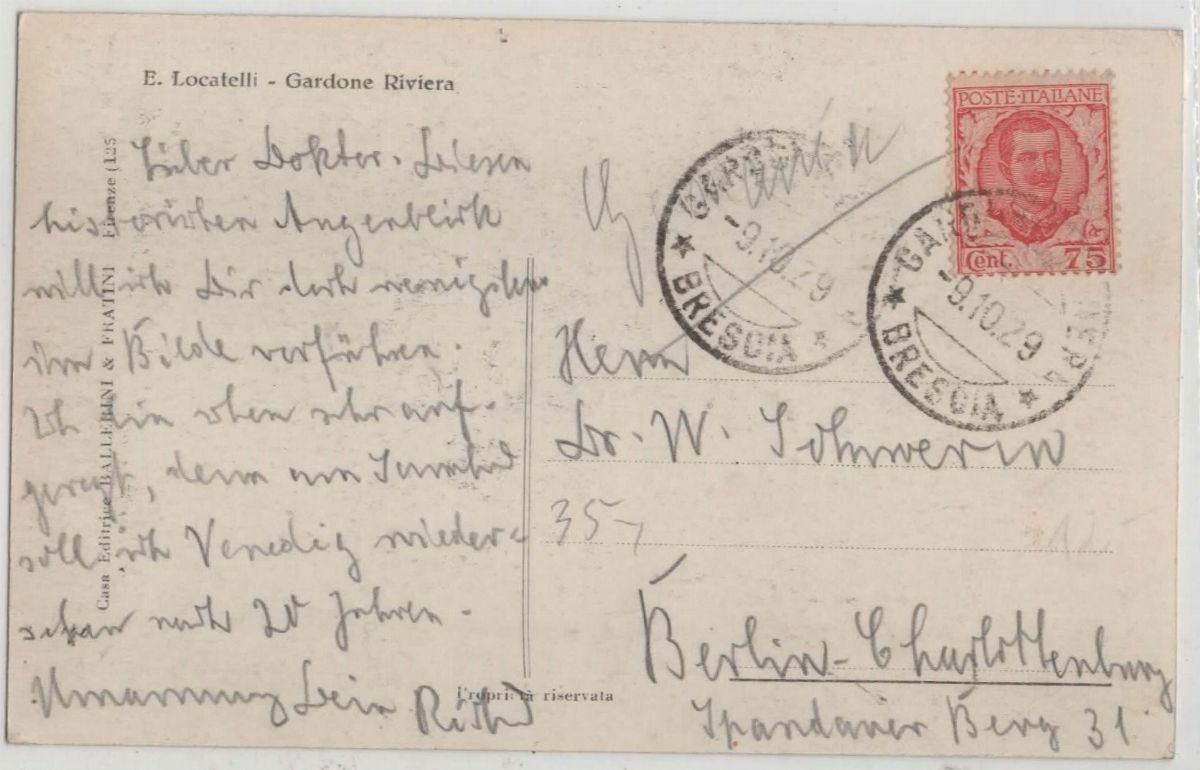 E. Locatelli - Gardone Riviera
Casa Editrice BALLERINI & FRATINI Firenze (125
Lieber Doktor. Diesen
historischen Augenblick
will ich Dir doch wenigstens
im Bilde vorführen.
Ich bin eben sehr auf-
geregt, denn am
soll ich Venedig wieder-
sehen nach 20 Jahren.
Umarmung Dein
Proprietà riservata
POSTE·ITALIANE
Cent. 75
-9.10.29
BRESCIA
-9.10.29
BRESCIA
Herrn
Dr. W. Schwerin
35,-
Berlin-Charlottenburg
Spandauer Berg 31